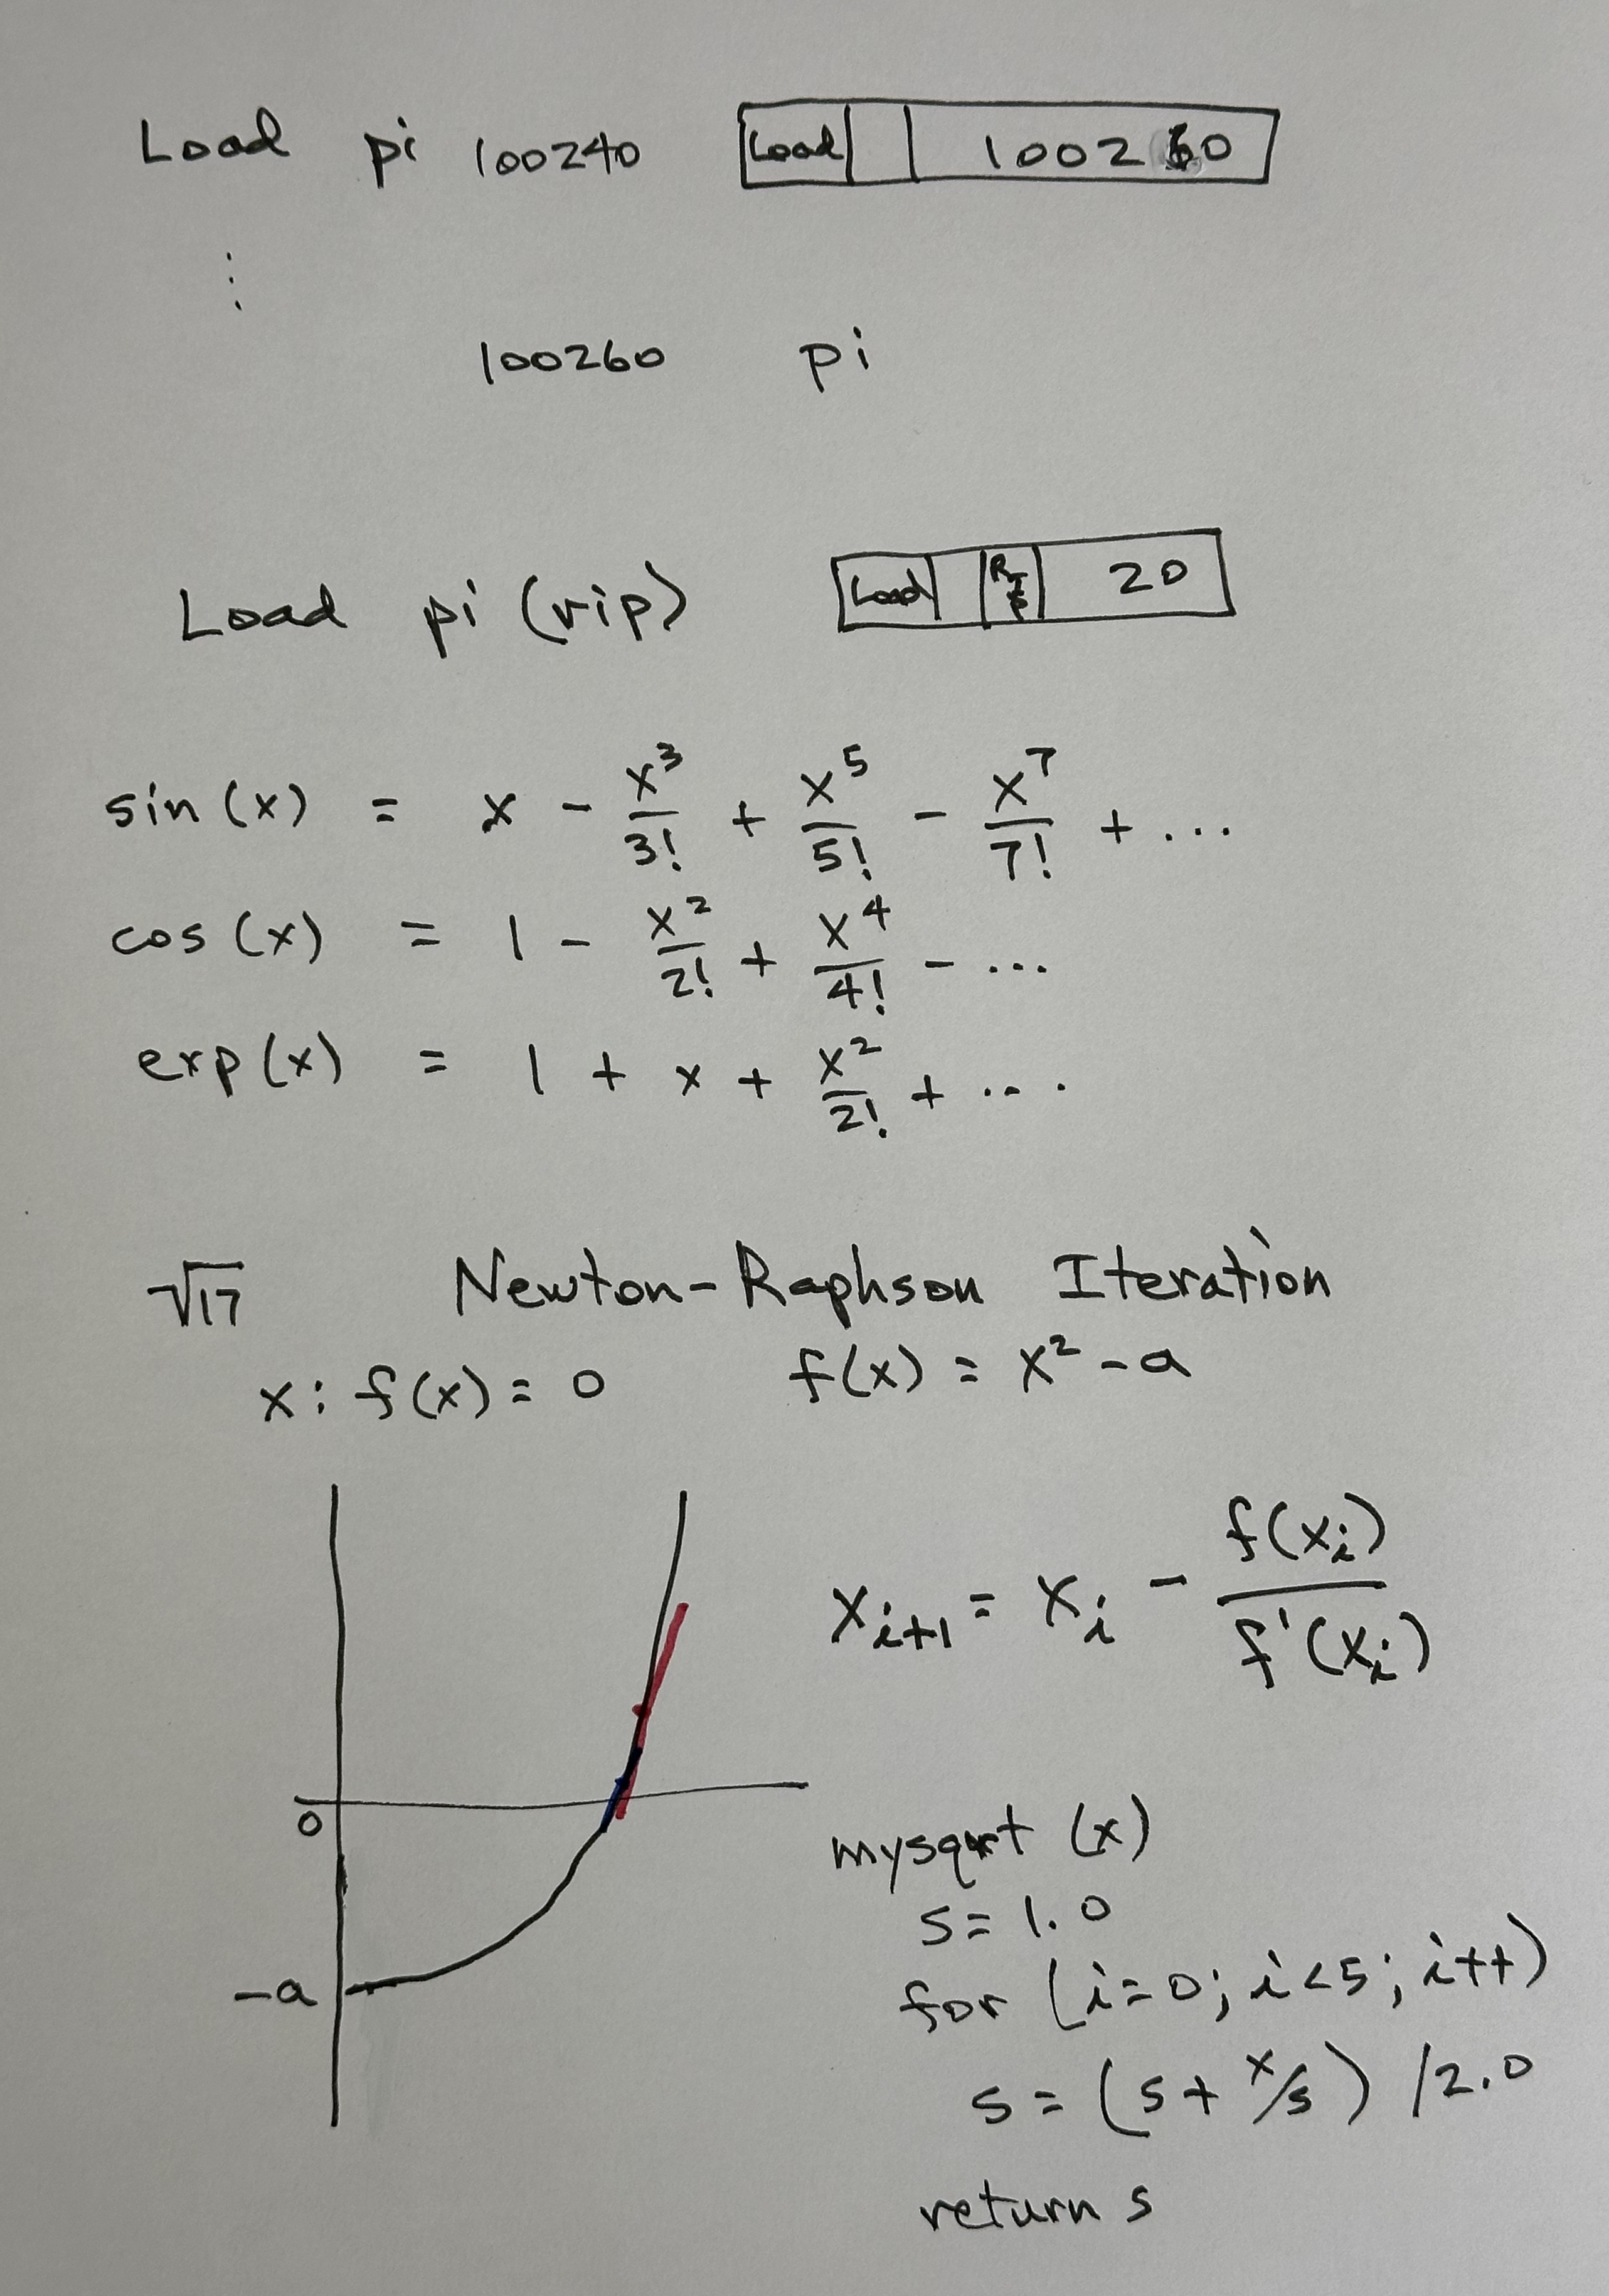 Load pi 100240 Load 100260
⋮
100260 pi
Load pi (rip) Load Rip 20
sin(x) = x - x³/3! + x⁵/5! - x⁷/7! + ...
cos(x) = 1 - x²/2! + x⁴/4! - ...
exp(x) = 1 + x + x²/2! + ...
√17 Newton-Raphson Iteration
x: f(x) = 0 f(x) = x² - a
x_{i+1} = x_i - f(x_i)/f'(x_i)
0
-a
mysqrt (x)
s = 1.0
for (i=0; i<5; i++)
s = (s + x/s) / 2.0
return s